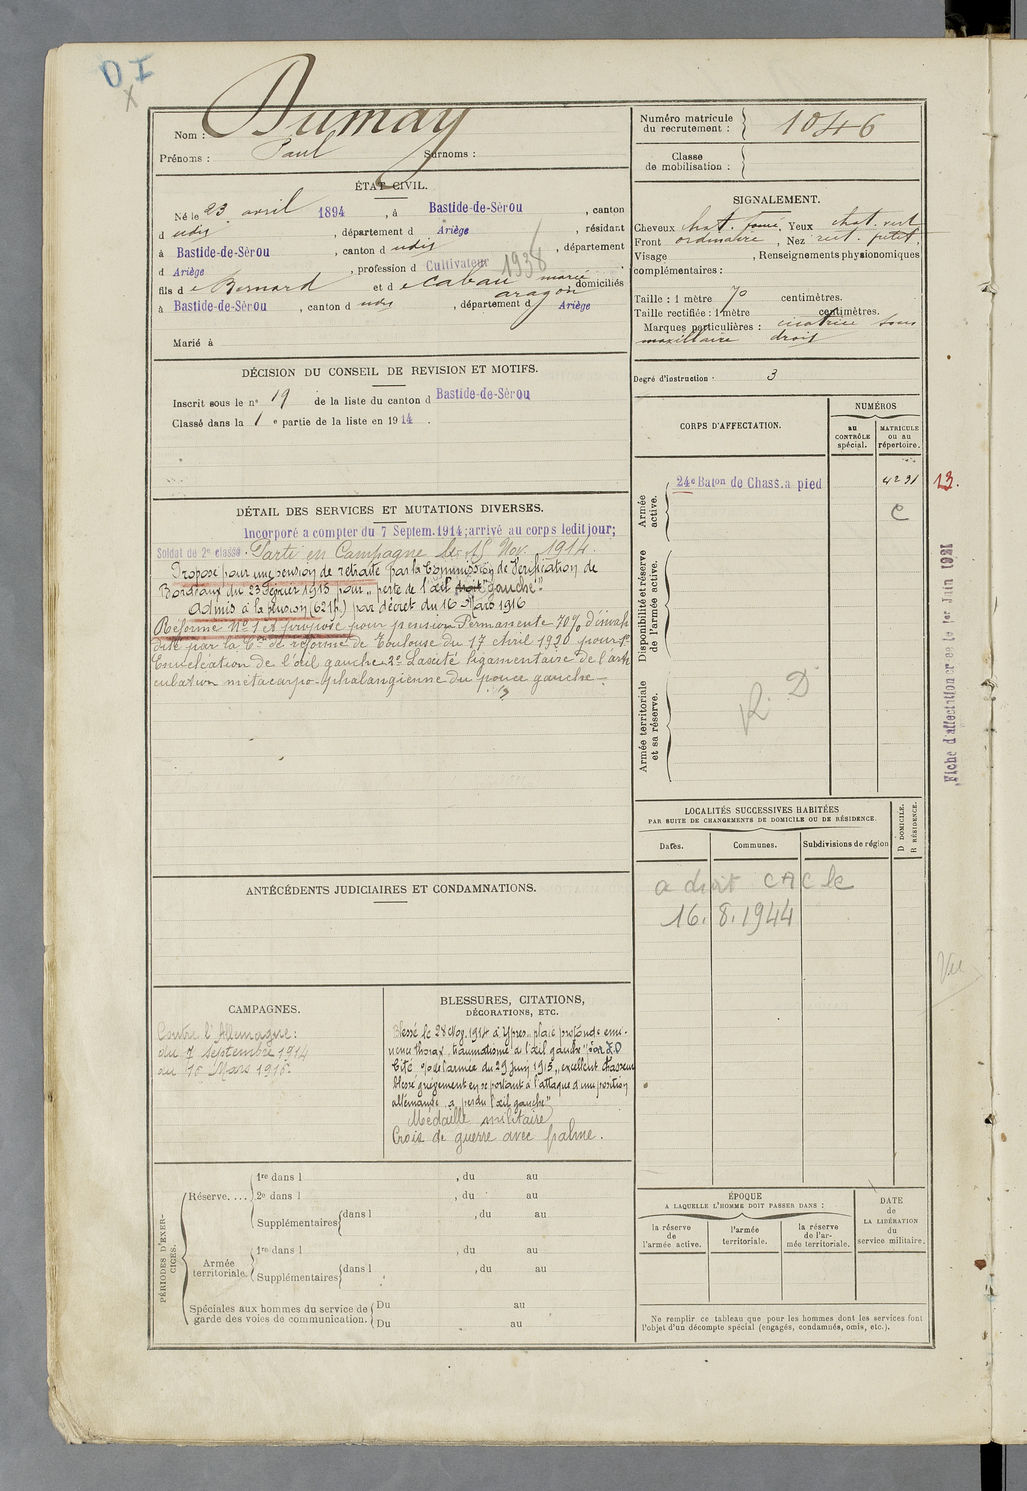 D I
X
Nom : Dumay
Prénoms : Paul Surnoms :
ÉTAT CIVIL.
Né le 23 avril 1894, à Bastide-de-Sérou, canton
d udis, département d Ariège, résidant
à Bastide-de-Sérou, canton d udis, département
d Ariège, profession d Cultivateur 1938
fils de Bernard et de Cabau marie domiciliés
aragon
à Bastide-de-Sérou, canton d udis, département d Ariège
Marié à
DÉCISION DU CONSEIL DE REVISION ET MOTIFS.
Inscrit sous le n° 19 de la liste du canton d Bastide-de-Sérou
Classé dans la 1 e partie de la liste en 1914.
DÉTAIL DES SERVICES ET MUTATIONS DIVERSES.
Incorporé a compter du 7 Septem. 1914; arrivé au corps ledit jour;
Soldat de 2e classe. Parti en Campagne le 15 Nov. 1914.
Proposé pour une pension de retraite par la Commission de Vérification de
Bordeaux du 23 Février 1915 pour "perte de l'œil droit gauche"
Admis à la pension (621f.) par décret du 16 Mars 1916
Réforme N° 1 et proposé pour pension Permanente 70% d'invali
dité par la Con de réforme de Toulouse du 17 Avril 1920 pour 1°
Enucléation de l'œil gauche 2° Laxité ligamentaire de l'arti
culation métacarpo-phalangienne du pouce gauche.
ANTÉCÉDENTS JUDICIAIRES ET CONDAMNATIONS.
CAMPAGNES.
Contre l'Allemagne:
du 7 septembre 1914
au 16 Mars 1916.
BLESSURES, CITATIONS,
DÉCORATIONS, ETC.
Blessé le 28 Nov. 1914 à Ypres "plaie profonde
thorax, traumatisme à l'œil gauche" par E.O
Cité de l'armée du 29 Juin 1915 "excellent chasseur
blessé grièvement en se portant à l'attaque d'une position
allemande, a perdu l'œil gauche"
Médaille militaire
Croix de guerre avec palme.
PÉRIODES D'EXERCICES.
Réserve.... 1re dans l , du au
2e dans l , du au
Supplémentaires dans l , du au
du au
Armée territoriale. 1re dans l , du au
Supplémentaires dans l , du au
du au
Spéciales aux hommes du service de garde des voies de communication. Du au
Du au
Numéro matricule du recrutement : 1046
Classe de mobilisation :
SIGNALEMENT.
Cheveux chat. foncé, Yeux chat. vert
Front ordinaire, Nez rect. petit,
Visage , Renseignements physionomiques
complémentaires :
Taille : 1 mètre 70 centimètres.
Taille rectifiée : 1 mètre centimètres.
Marques particulières : cicatrice sous
maxillaire droit
Degré d'instruction : 3
CORPS D'AFFECTATION.
NUMÉROS
au CONTRÔLE spécial.
MATRICULE ou au répertoire.
Armée active.
24e Baton de Chass. a pied 4291
C
13.
Disponibilité et réserve de l'armée active.
Armée territoriale et sa réserve.
R. D
Fiche d'affectation créée le 1er Juin 1931
LOCALITÉS SUCCESSIVES HABITÉES
PAR SUITE DE CHANGEMENTS DE DOMICILE OU DE RÉSIDENCE.
Dates. Communes. Subdivisions de région
D DOMICILE.
R RÉSIDENCE.
a droit CAC le
16. 8. 1944
Vu
ÉPOQUE
A LAQUELLE L'HOMME DOIT PASSER DANS :
la réserve de l'armée active.
l'armée territoriale.
la réserve de l'armée territoriale.
DATE de LA LIBÉRATION du service militaire.
Ne remplir ce tableau que pour les hommes dont les services font
l'objet d'un décompte spécial (engagés, condamnés, omis, etc.).